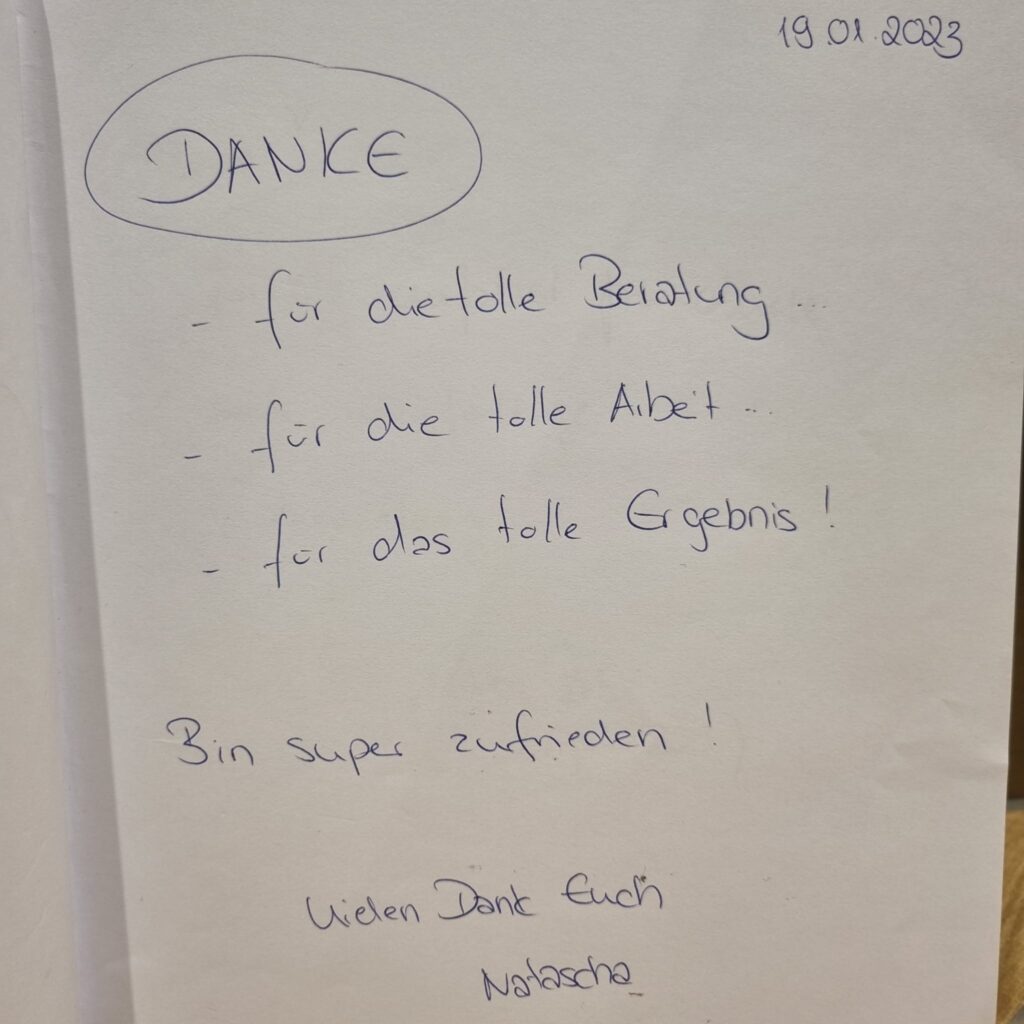 19.01.2023
DANKE
- für die tolle Beratung ...
- für die tolle Arbeit ...
- für das tolle Ergebnis !
Bin super zufrieden !
Vielen Dank Euch
Natascha